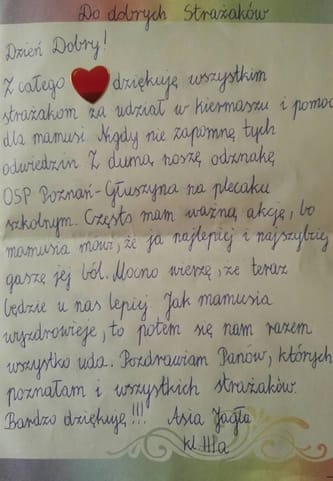 Do dobrych Strażaków
Dzień Dobry!
Z całego dziękuję wszystkim
strażakom za udział w kiermaszu i pomoc
dla mamusi. Nigdy nie zapomnę tych
odwiedzin. Z dumą noszę odznakę
OSP Poznań-Głuszyna na plecaku
szkolnym. Często mam ważną akcję, bo
mamusia mówi, że ja najlepiej i najszybciej
gaszę jej ból. Mocno wierzę, że teraz
będzie u nas lepiej. Jak mamusia
wyzdrowieje, to potem się nam razem
wszystko uda. Pozdrawiam Panów, których
poznałam i wszystkich strażaków.
Bardzo dziękuję!!! Asia Jagła
kl. IIIa